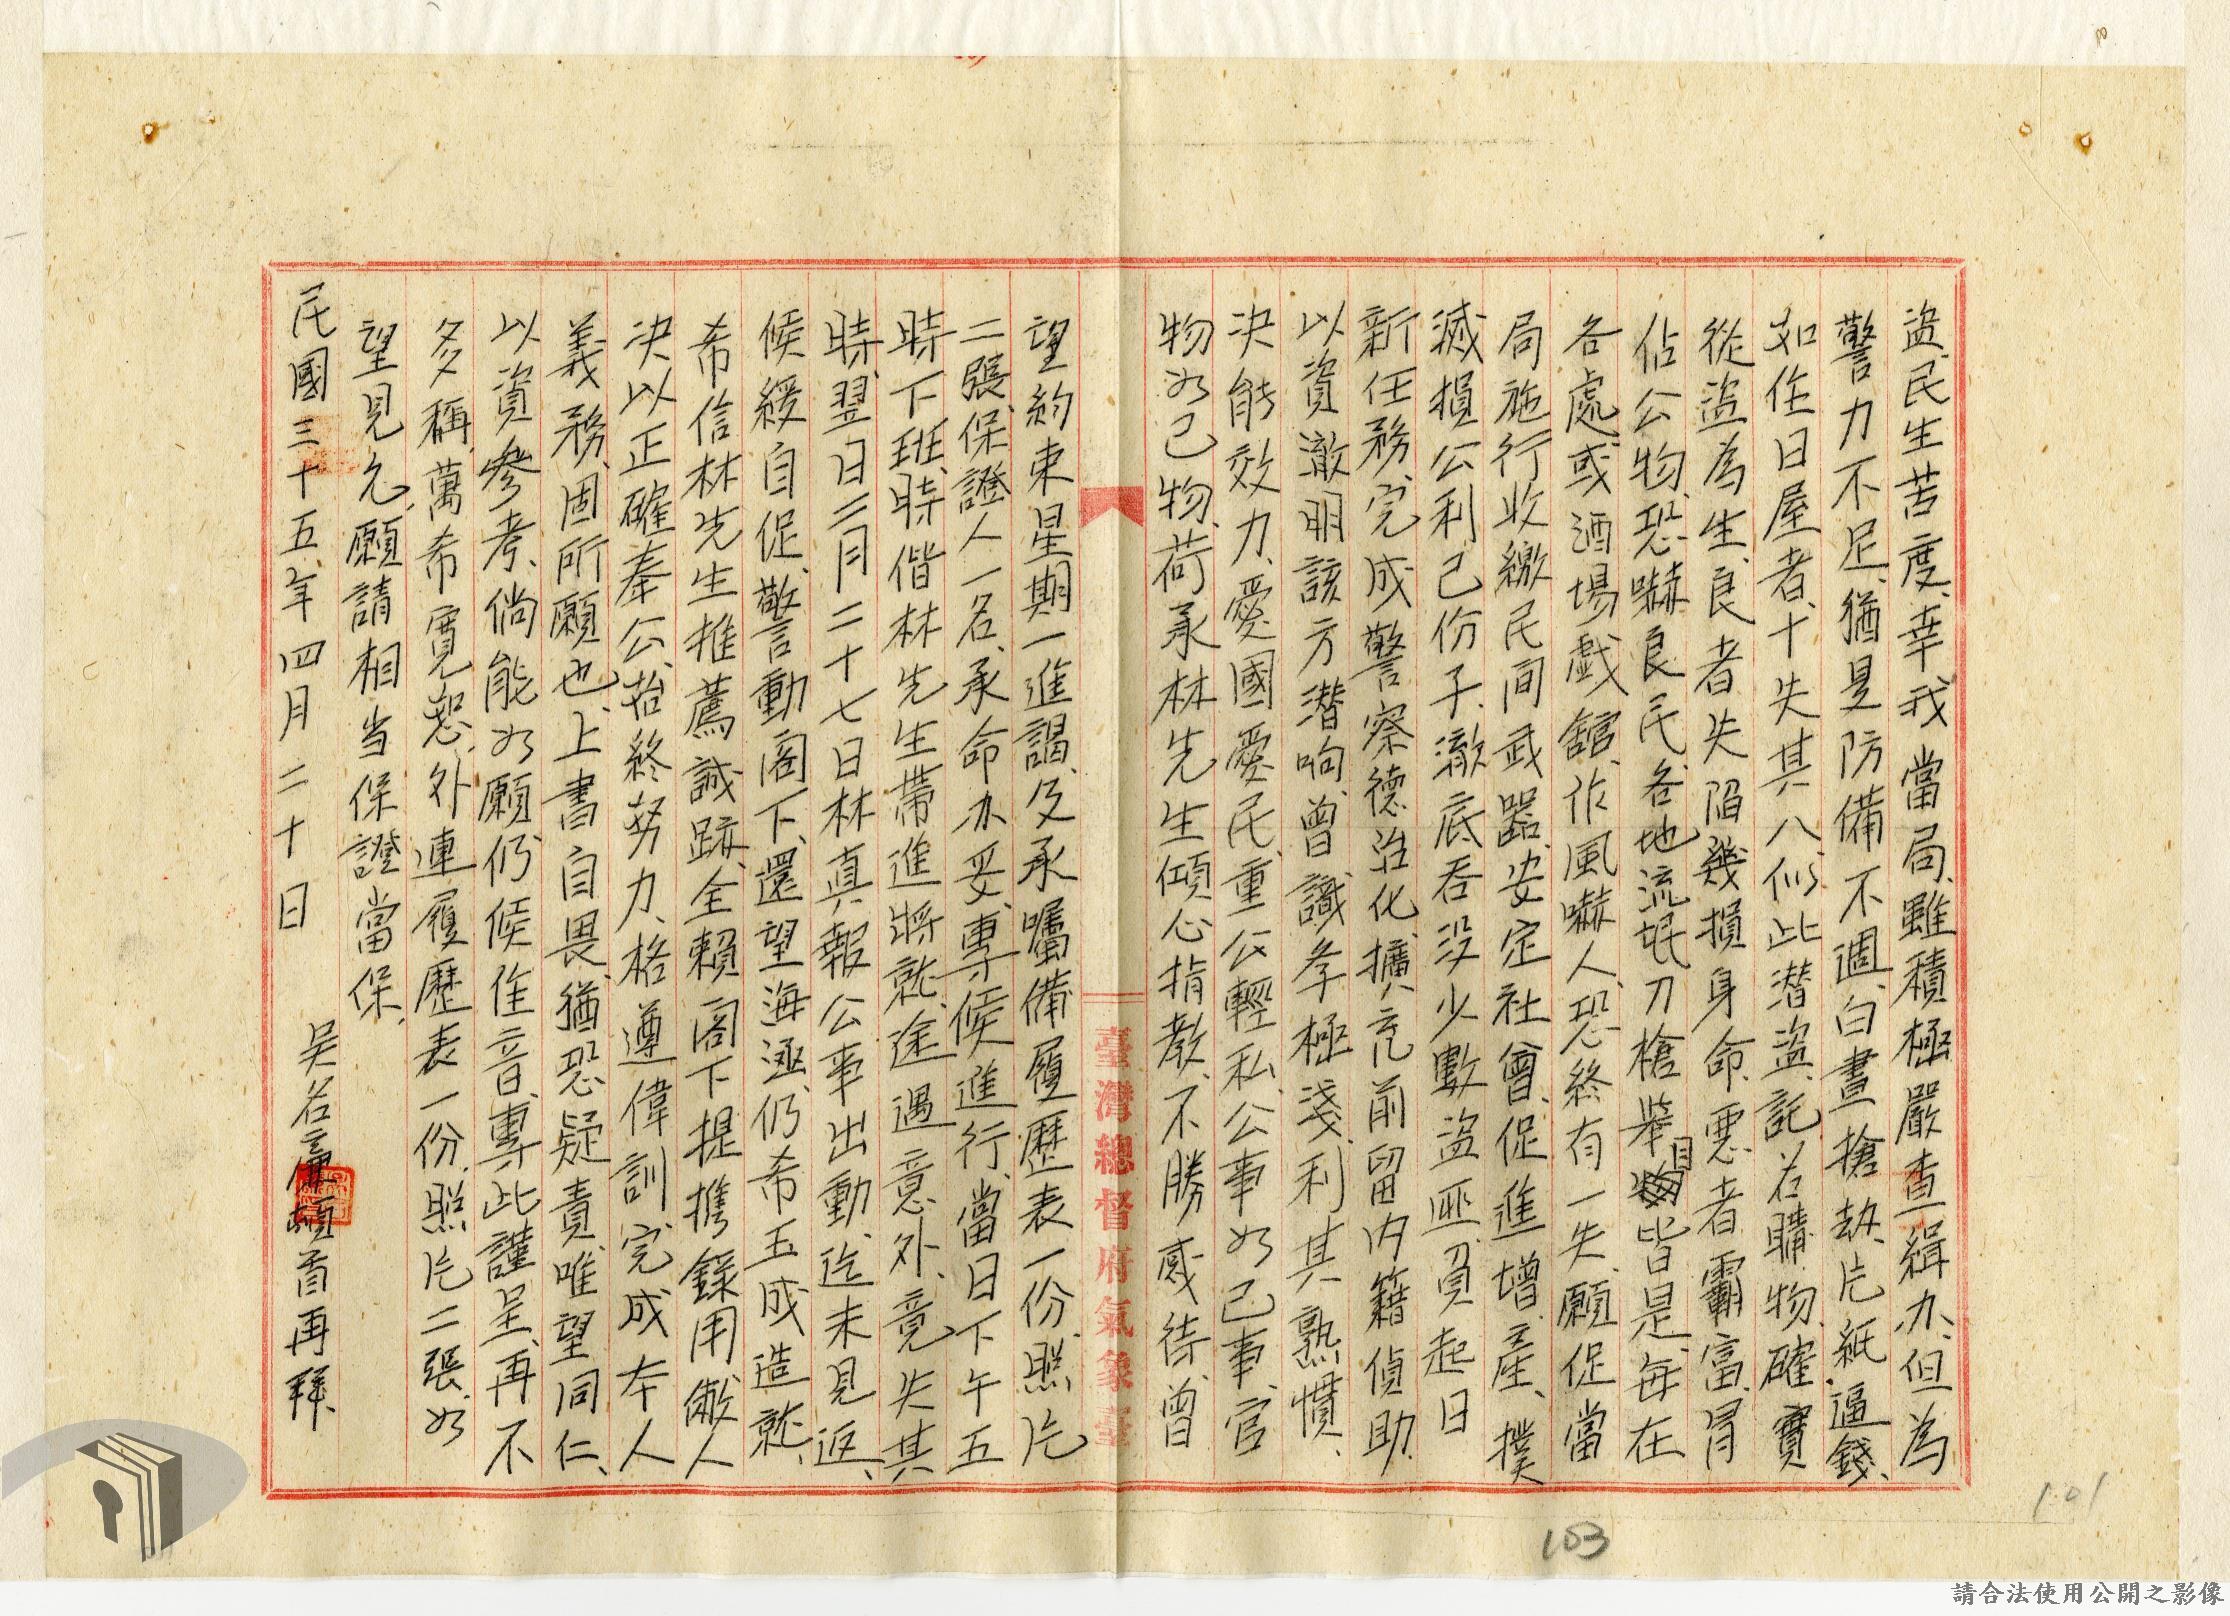 盗、民生苦度、幸我當局、雖積極嚴查緝办、但為
警力不足、猶是防備不週、白晝搶劫、片紙逼錢、
如住日屋者、十失其八、似此潜盗、託名購物、確實
從盗為生、良者失陷幾損身命、悪者覇富、冒
佔公物、恐嚇良民、各地流氓刀槍舉目皆是、每在
各處或酒場戯舘、作風嚇人、恐終有一失、願促當
局施行收繳民间武器、安定社會、促進增產、撲
滅損公利己份子、澈底吞没少數盗匪、召員起日
新任務、完成警察德治化、擴充前留内籍偵助、
以資澈明該方潜响、曾識孝極淺、利其熟慣、
决能效力、愛國愛民、重公輕私、公事如己事、官
物如己物、荷承林先生傾心指教、不勝感待、曾
臺灣總督府氣象臺
望約束星期一進謁、及承囑備履歷表一份、照片
二張、保證人一名、承命办妥、專候進行、當日下午五
時下班、時偕林先生帶進將就途遇意外、竟失其
時、翌日二月二十七日林真報公事出動、迄未見返、
候緩自促、敬言動閣下、還望海涵、仍希玉成造就、
希信林先生推薦誠跡、全賴閣下提携錄用、僌人
决以正確奉公、始終努力、格遵偉訓、完成本人
義務、固所願也、上書自畏、猶恐疑責、唯望同仁、
以資参考、倘能如願仍候佳音、專此謹呈、再不
多稱、萬希寛恕、外連履歷表一份、照片二張、如
望見允、願請相当保證當保、
民國三十五年四月二十日
吴名廉頓首再拜、
103
101
請合法使用公開之影像